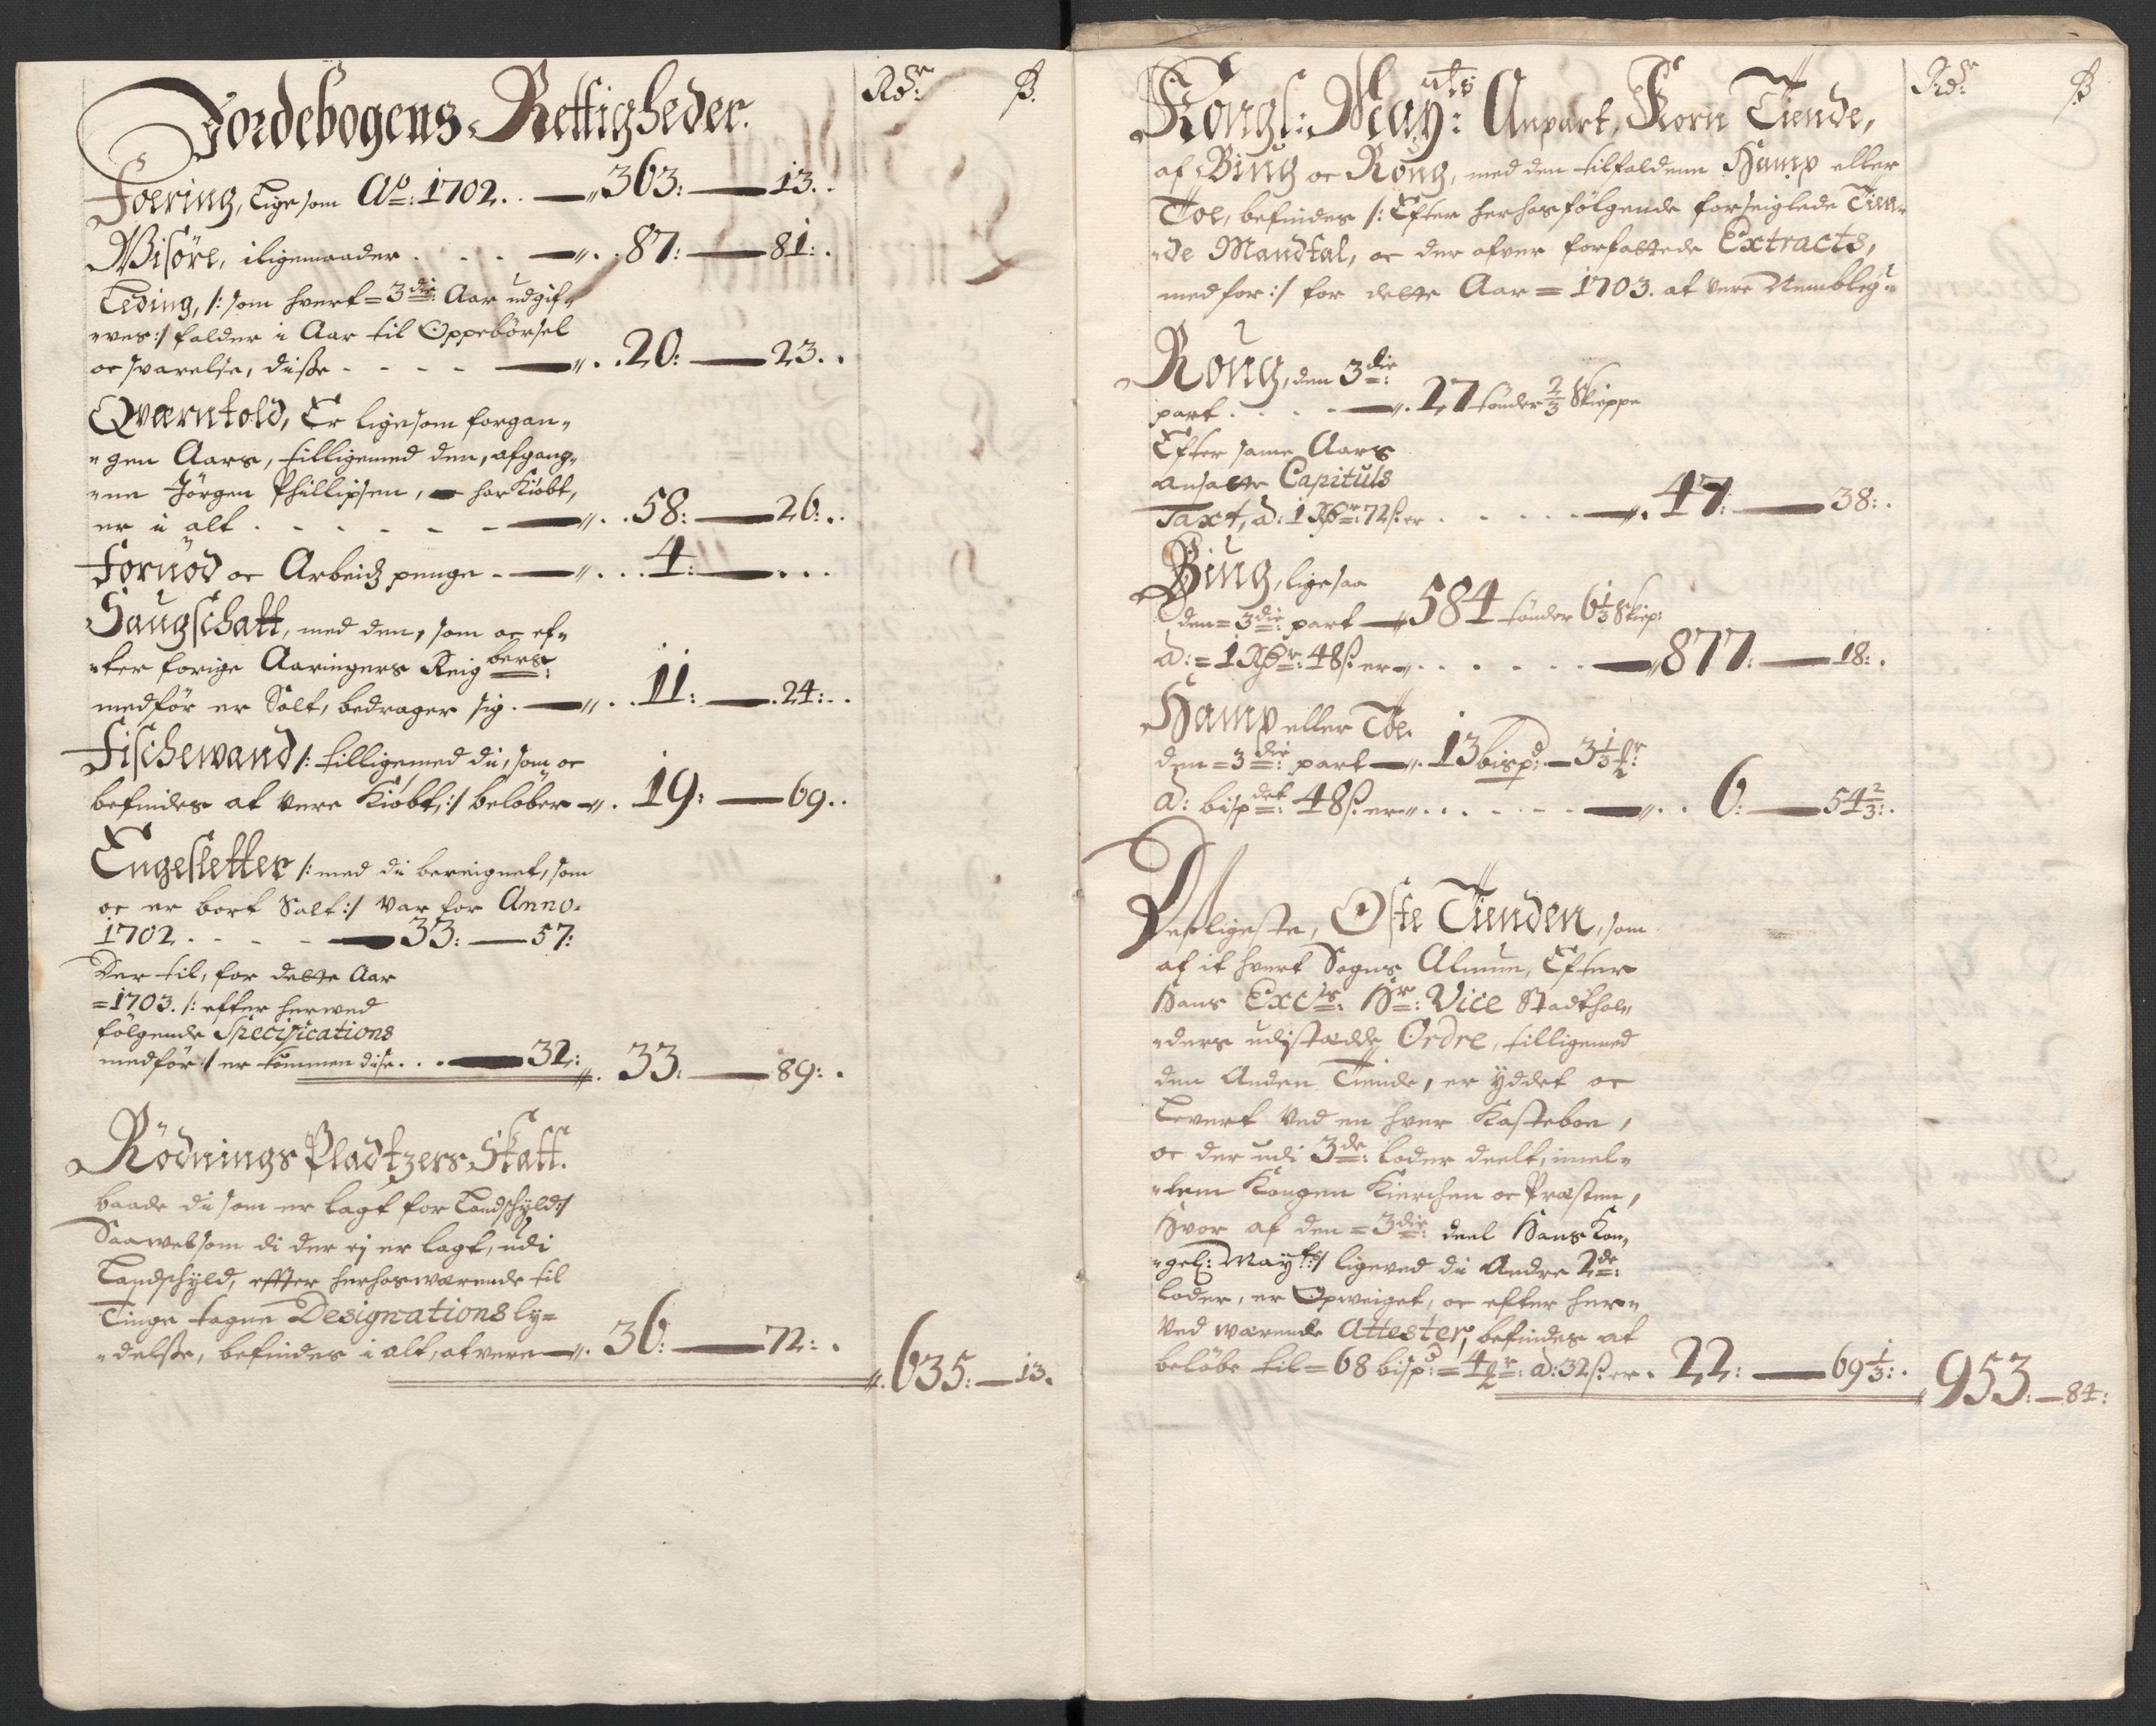 Jordebogens Rettigheder. Rdr: ß.
Foering, Lige som Ao: 1702. . — „363: — 13. .
Wisöre, iligemaader . . . . — „. . 87: — 81: .
Leding, /: som hvert = 3die: Aar udgif„
„ves :/ falder i Aar til Oppebörsel
oc svarelse, disse - - - - — „. . 20: — 23. .
Qværntold, Er ligesom forgan„
„gen Aars, tilligemed den, afgang„
„ne Jörgen Phillipsen, har Kiöbt,
er i alt . - - - - - — „. . 58: — 26: . .
Fornöd oc Arbeidz penge - — „. . . 4: — . . .
Haugschatt, med den, som oc ef„
„ter forige Aaringers Reigbers:
medför er Solt, bedrager sig . — „. . 11: — 24: . .
Fischewand /: tilligemed di, som oc
befindes at vere Kiöbt, :/ belöber — „. 19: — 69. .
Engesletter /: med di bereignet, som
oc er bort Solt :/ var for Anno.
1702 . - - - — 33: — 57:
Der til, for dette Aar
= 1703. /: efter herved
fölgende Specifications
medför :/ er kommen disse . . . — 32: „. 33: — 89: .
Rödnings Pladtzers Skatt.
baade di som er lagt for Landschyld :/
Saawelsom di der ej er lagt, udi
Landschyld, effter herhoswærende til
Tinge tagne Designations ly=
„delsse, befindes i alt, at vere — „. 36: — 72: .
„. 635: — 13.
Kongl: Mayts: Anpart, Korn Tiende, Rdr: ß
af Biug oc Roug, med den tilfaldene Hamp eller
Toe, befindes /: Efter herhos fölgende forseiglede Tien„
„de Mandtal, oc der ofver forfattede Extracts,
medför :/ for dette Aar = 1703. at vere Nembleg: „
Roug, den 3die:
part . . . . — „. 27 tönder 2/3 Skieppe
Efter same Aars
ansatte Capituls
Taxt, â: 1 Rdr: 72 ß. er . . . . . — „. 47: — 38: .
Biug, lige saa
den = 3die: part — „584 tönder 6 1/3 Skiep:
â: = 1 Rdr: 48 ß. er „. . . . . . — „877: — 18: .
Hamp eller Toe.
den = 3die: part — „. 13 bispd: — 3 1/3 lr:
â: bispdet: 48 ß. er „. . . . - - - — „. . 6: — 54 2/3: .
Desligeste, Oste Tienden, som
af it hvert Sogns Almue, Efter
Hans Excls: Hr: Vice Stadthol„
„ders udstædde Ordre, tilligemed
den Anden Tiende, er ÿddet oc
Levert ved en hver Kasteboe,
oc der udi 3de: loder deelt, imel„
„lem Kongen Kierchen oc Præsten,
Hvor af den = 3die: deel Hans Kon„
„gel: Mayts :/ ligeved di Andre 2de:
loder, er Opweiget, oc efter her„
ved wærende Attester, befindes at
belöbe til = 68 bispd: = 4 1/2 r: â: 32 ß. er . 22: — 69 1/3: .
„953: — 84: